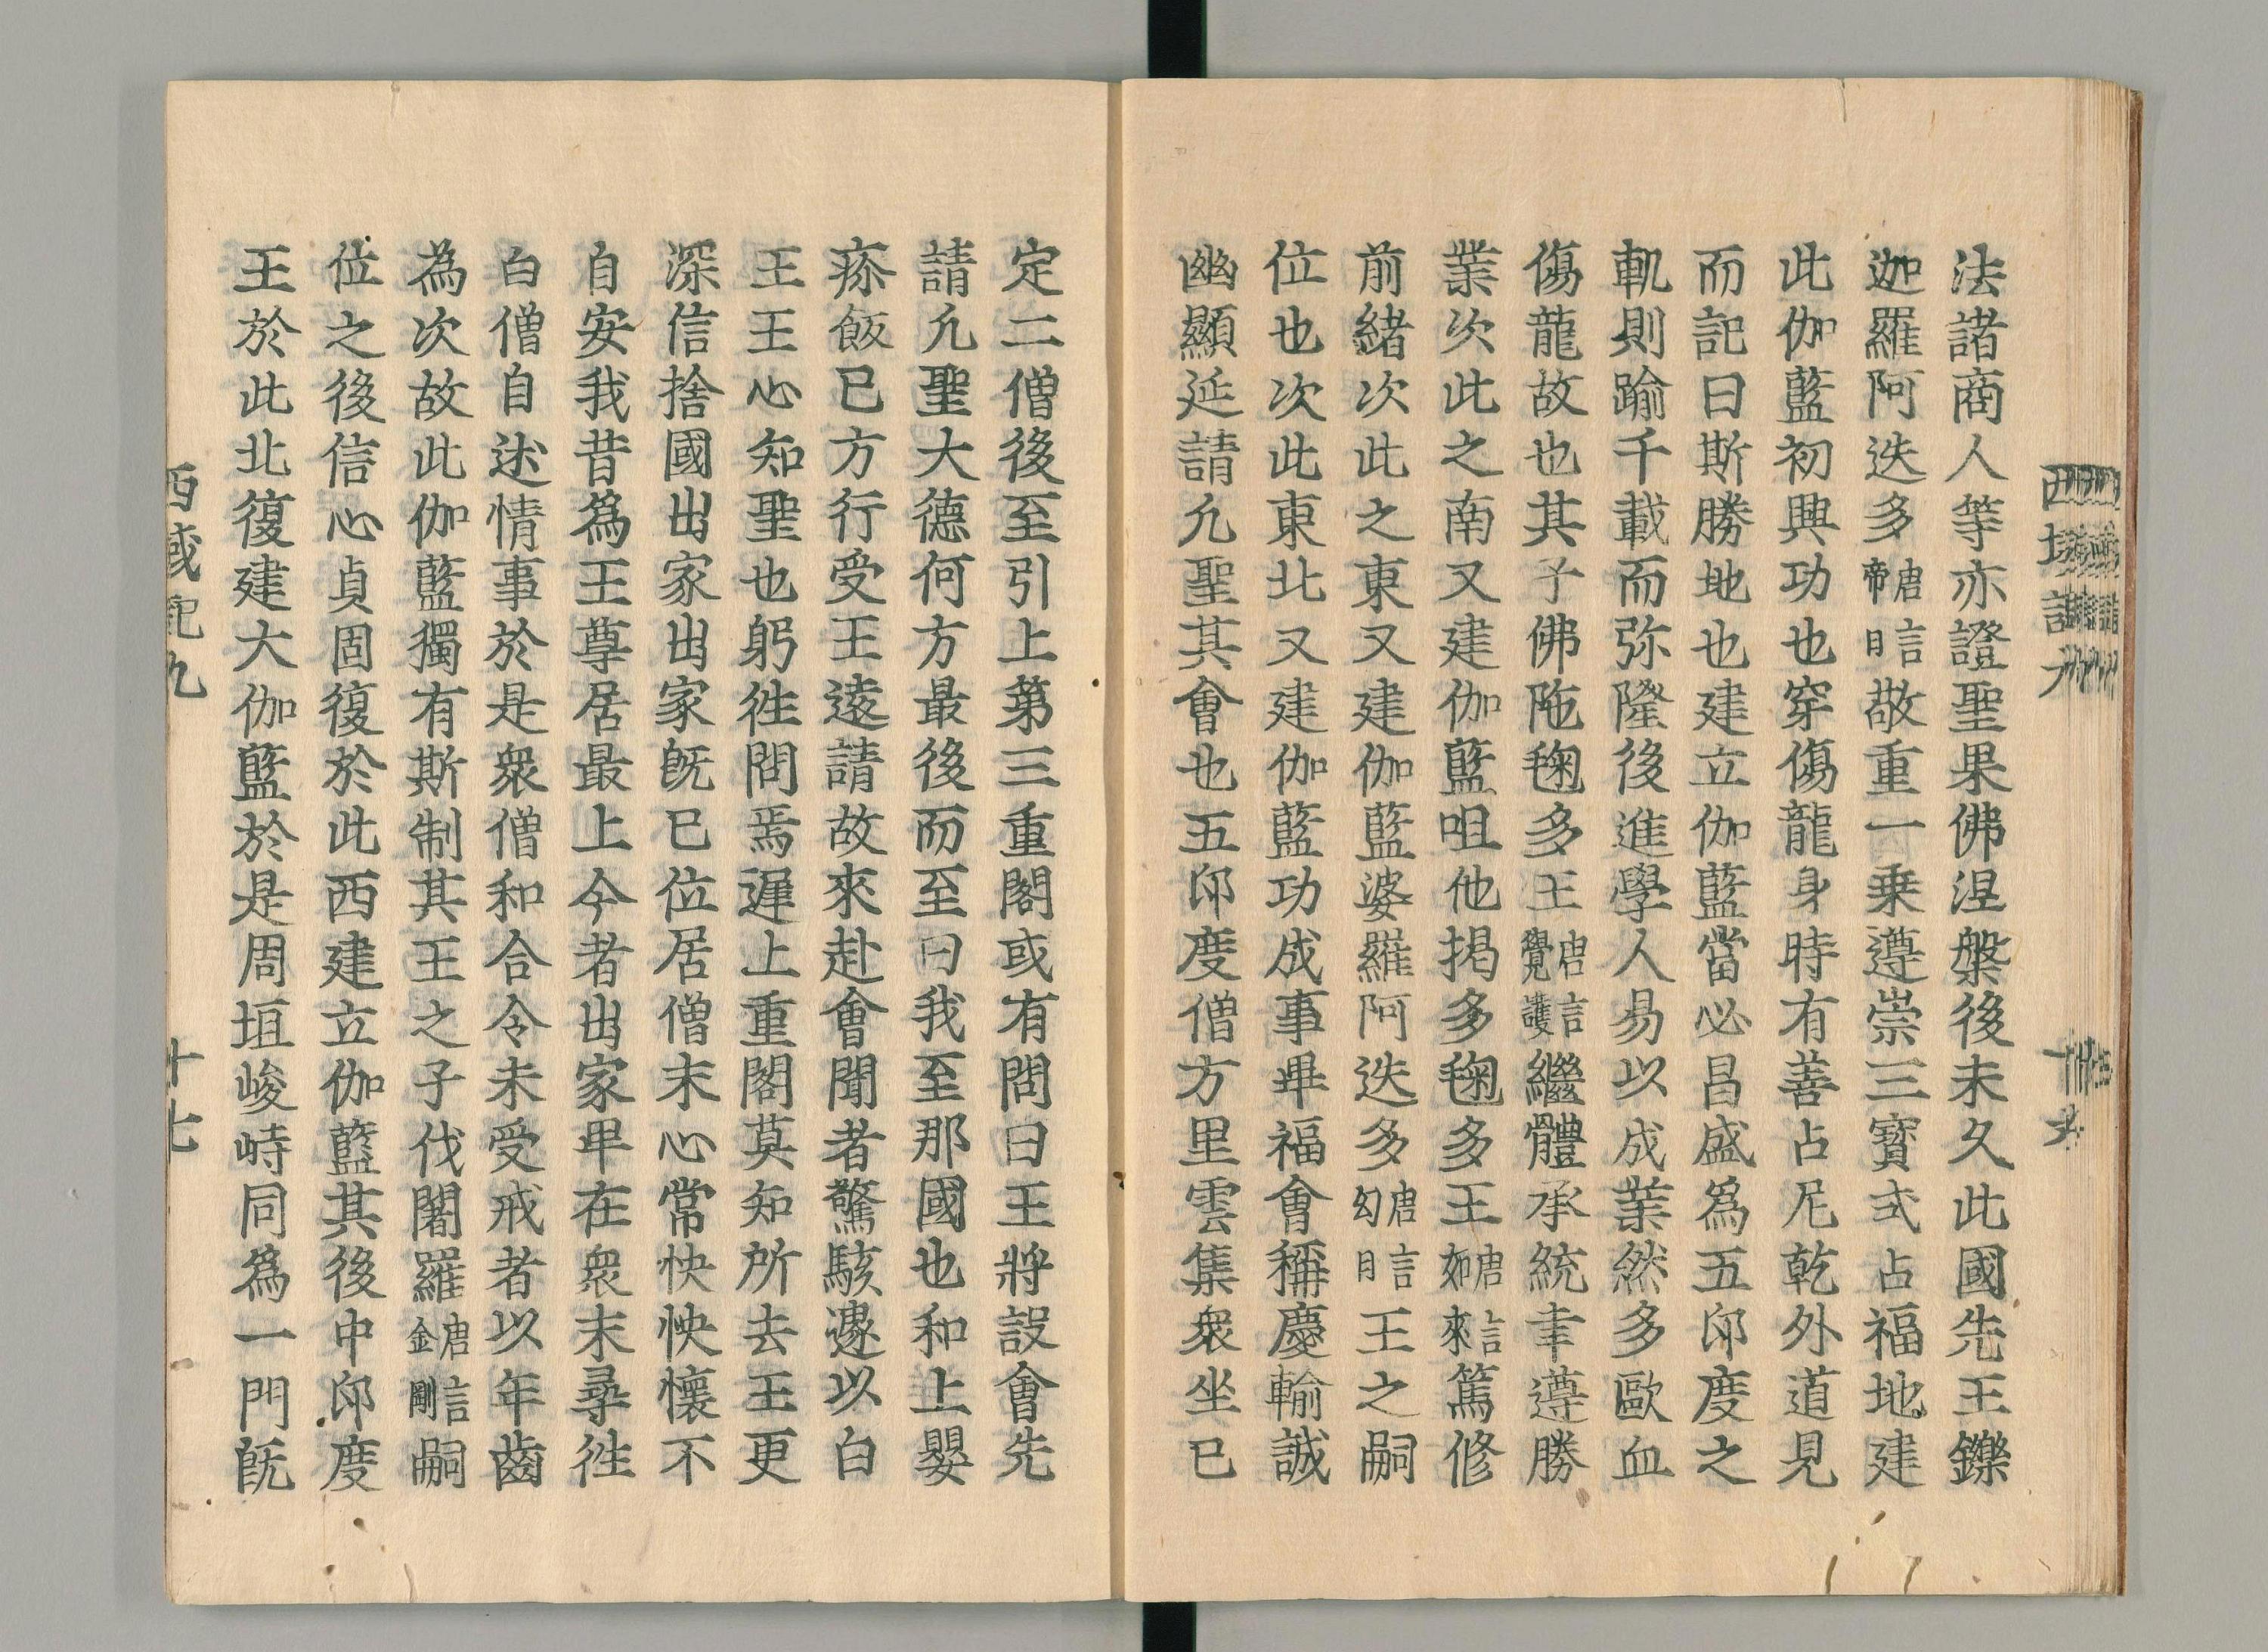 法諸商人等亦證聖果佛涅槃後未久此國先王鑠
迦羅阿迭多唐言帝日敬重一乗遵崇三寳式占福地建
此伽藍初興功也穿傷龍身時有善占尼乾外道見
而記曰斯勝地也建立伽藍當必昌盛爲五印度之
軌則踰千載而弥隆後進學人易以成業然多歐血
傷龍故也其子佛陁毱多王唐言覺護繼體承統聿遵勝
業次此之南又建伽藍呾他揭多毱多王唐言如來篤修
前緒次此之東又建伽藍婆羅阿迭多唐言幻日王之嗣
位也次此東北又建伽藍功成事畢福會稱慶輸誠
幽顯延請凢聖其會也五印度僧方里雲集衆坐已
定二僧後至引上第三重閣或有問曰王將設會先
請凢聖大德何方最後而至曰我至那國也和上嬰
疹飯已方行受王遠請故來赴會聞者驚駭遽以白
王王心知聖也躬徃問焉遲上重閣莫知所去王更
深信捨國出家出家既已位居僧末心常怏怏懷不
自安我昔爲王尊居最上今者出家卑在衆末尋徃
白僧自述情事於是衆僧和合令未受戒者以年齒
為次故此伽藍獨有斯制其王之子伐闍羅唐言金剛嗣
位之後信心貞固復於此西建立伽藍其後中印度
王於此北復建大伽藍於是周垣峻峙同爲一門既
西域記九
十七